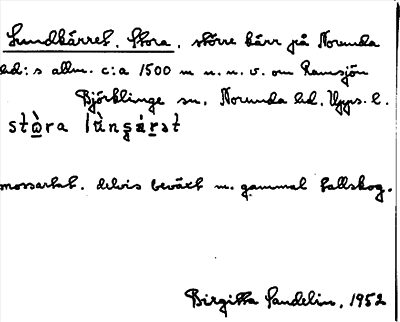 Lundkärret, Stora, större kärr på Norunda
hd:s allm. c:a 1500 m n.n.v. om Ramsjön
Björklinge sn, Norunda hd, Upps. l.
stὼ̲ra lùnʂá̲r̲ət
mossartat, delvis beväxt m. gammal tallskog.
Birgitta Sandelin, 1952